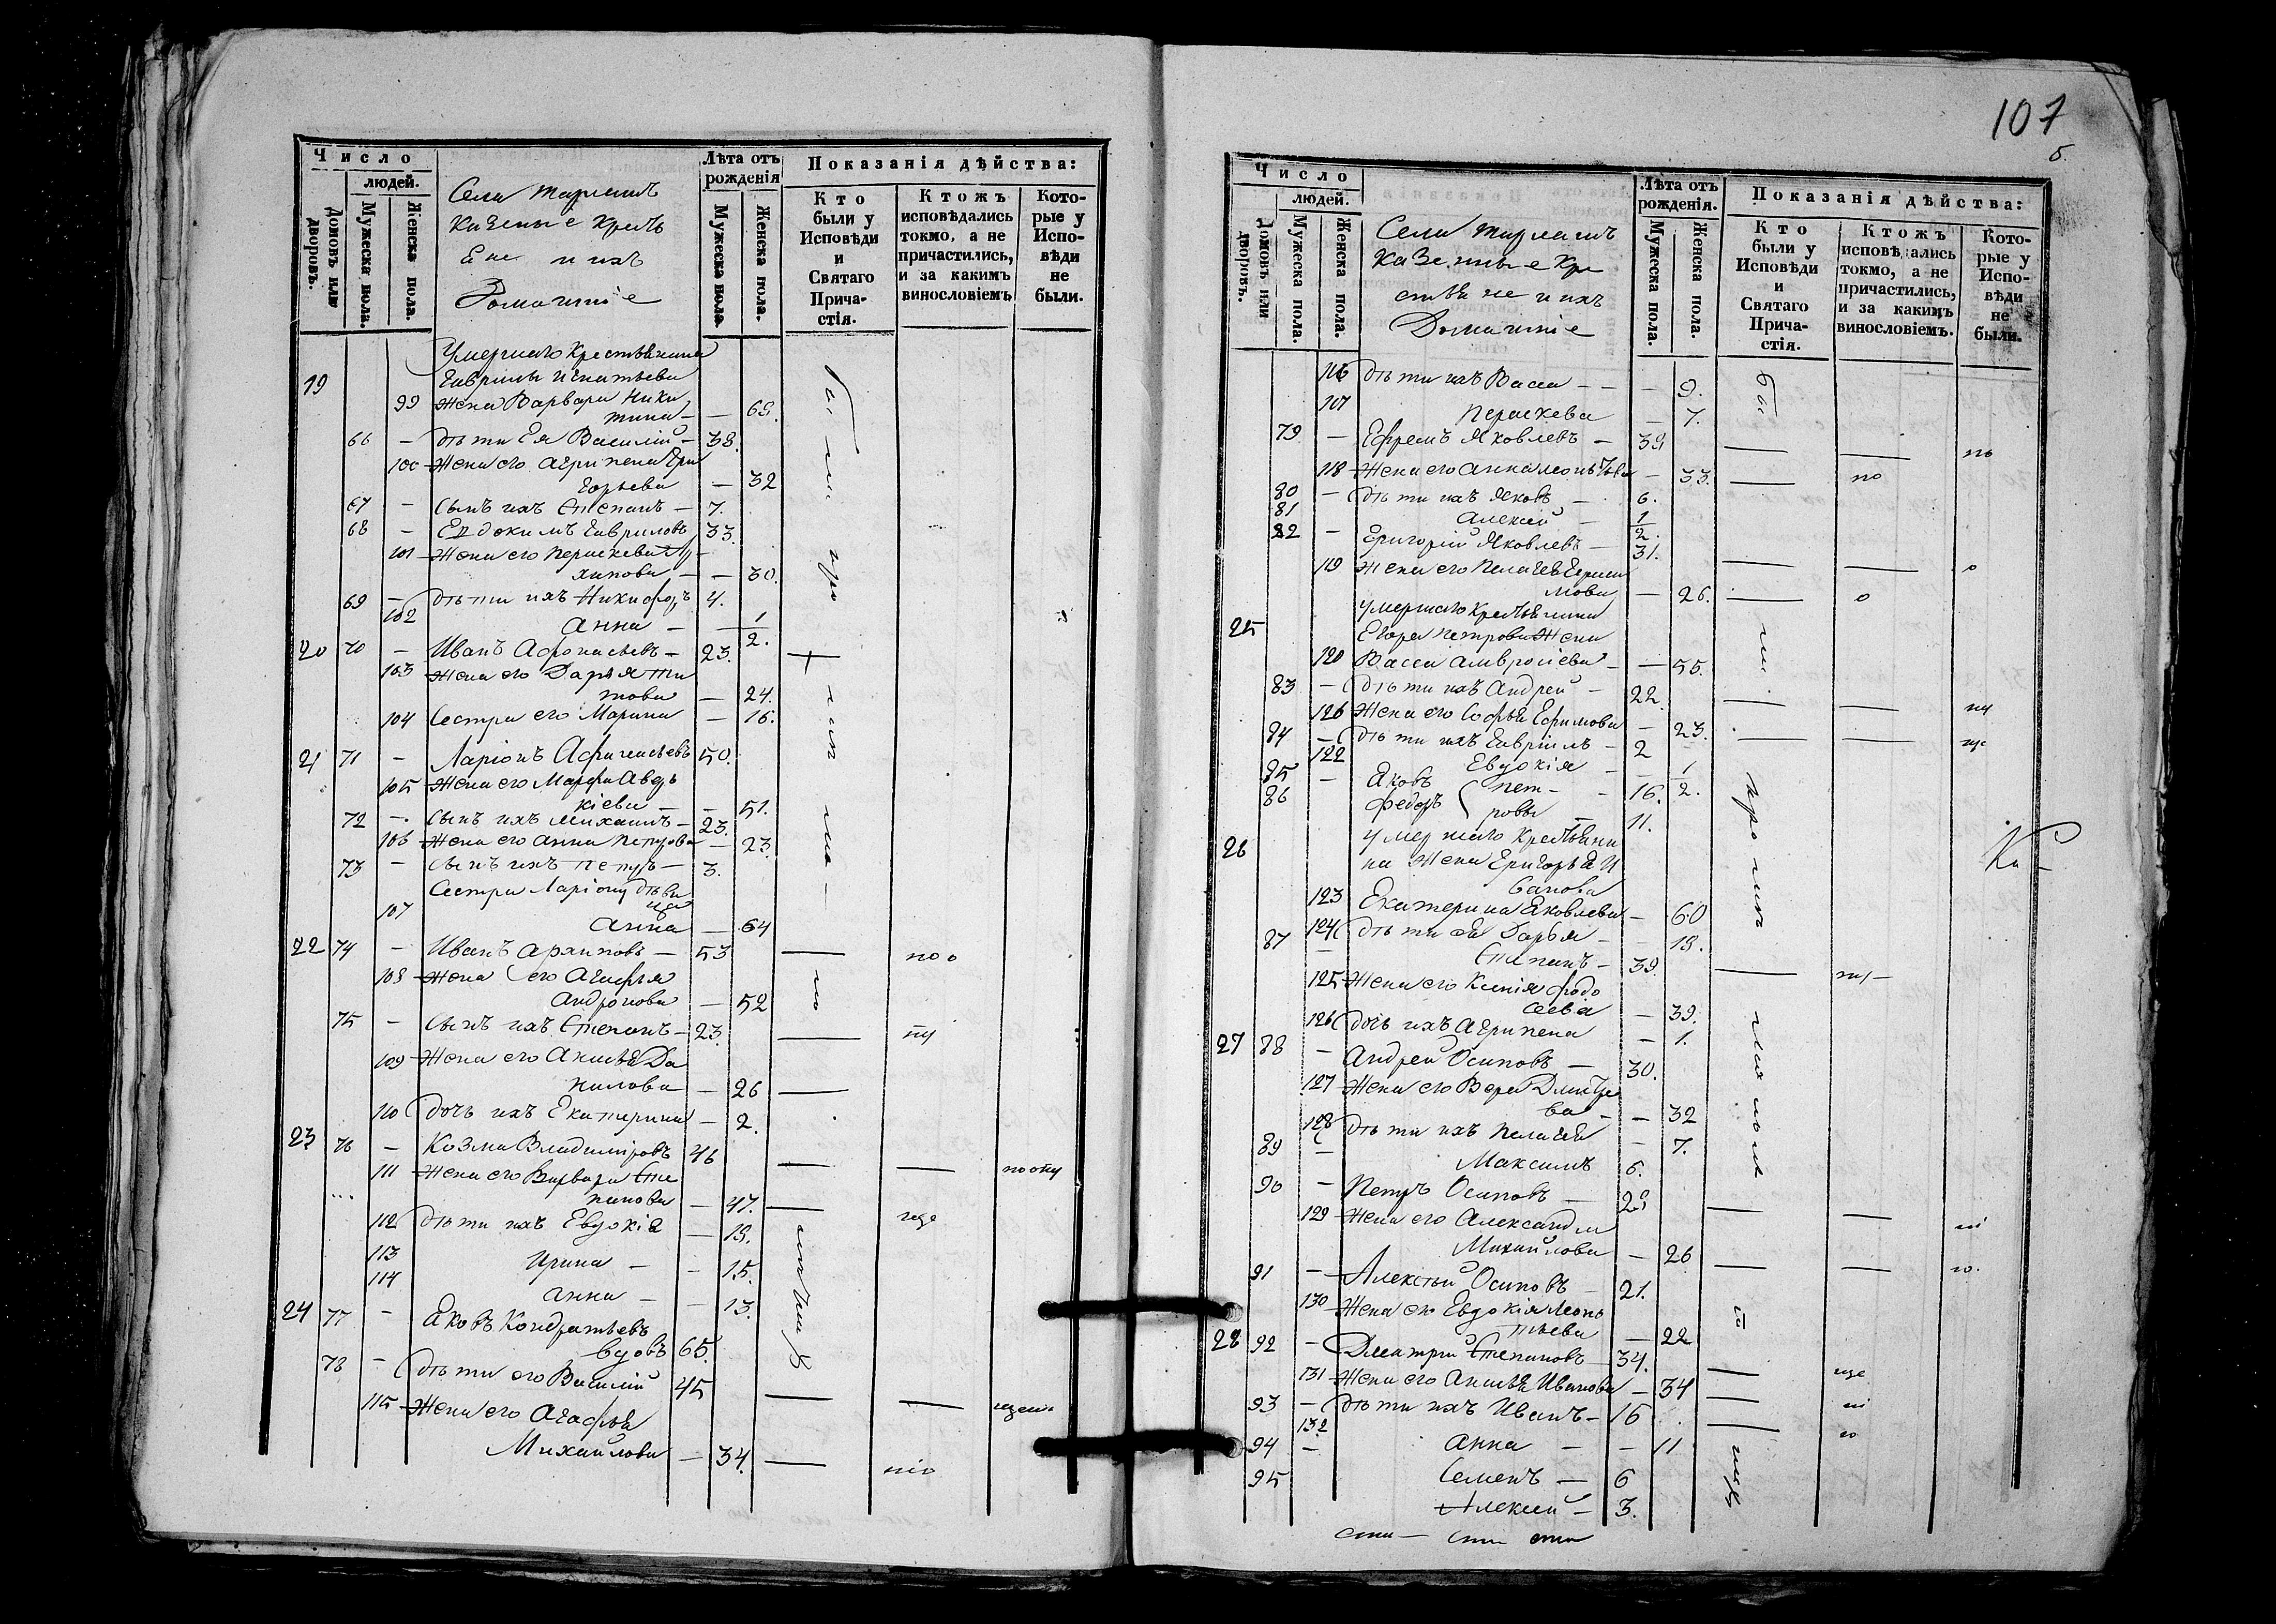 Число
людей.
Домовъ или дворовъ.
Мужеска пола.
Женска пола.
Села
Казеные Кресть
Ене и ихъ
Домашніе
Лѣта отъ рожденія
Мужеска пола.
Женска пола.
Показанія дѣйства:
Кто были у Исповѣди и Святаго Прича-стія.
Ктожъ исповѣдались токмо, а не причастились, и за какимъ винословіемъ
Кото-рые у Испо-вѣди не были.
Умершаго Крестьянина
19 Гаврилы Игнатьева
99 Жена Варвара Ники
тина — — 69.
66 — дѣти Ея Василій — 38.
100 Жена его Агрипена Гри
горьева — 32
67 — Сынъ ихъ Степанъ — 7.
68 — Евдокимъ Гавриловъ 33.
101 Жена его Параскева Ар
хипова — — 30.
69 — дѣти ихъ Никифоръ 4.
102 Анна — — 1/2.
20 70 — Иванъ Афонасьевъ — 23.
103 Жена его Дарья Ти
това — 24.
104 Сестра его Марина — 16.
21 71 — Ларіонъ Афанасьевъ 50.
105 Жена его Марфа Авдѣ
кіева — — 51.
72 — Сынъ ихъ Михаилъ — 23.
106 Жена его Анна Петрова — 23.
73 — Сынъ ихъ Петръ — 3.
Сестра Ларіону дѣви
107 ца
Анна — 64
22 74 — Иванъ Архиповъ — 53
108 Жена его Агафья
Андронова — 52
75 — Сынъ ихъ Степанъ — 23.
109 Жена его Аксинья Да
нилова — 26
110 дочь ихъ Екатерина — 2.
23 76 — Козма Владиміровъ 46
111 Жена его Варвара Сте
панова — 47.
112 дѣти ихъ Евдокія — 19.
113 Ирина — — 15.
114 Анна — — 13.
24 77 — Яковъ Кондратьевъ
вдовъ 65.
78 — дѣти его Василій 45
115 Жена его Агафья
Михайлова — 34.
107
б.
Число
людей.
Домовъ или дворовъ.
Мужеска пола.
Женска пола.
Села
Казенные Кре
стьяне и ихъ
Домашніе
Лѣта отъ рожденія.
Мужеска пола.
Женска пола.
Показанія дѣйства:
Кто были у Исповѣди и Святаго Прича-стія.
Ктожъ исповѣдались токмо, а не причастились, и за какимъ винословіемъ.
Кото-рые у Испо-вѣди не были.
116 дѣти ихъ Васса — — — 9.
117 Параскева — 7.
79 — Ефремъ Яковлевъ — 39
118 Жена его Анна Леонтьева — 33.
80 — дѣти ихъ Яковъ — 6.
81 Алексѣй — 1/2.
82 — Григорій Яковлевъ — 31.
119 Жена его Пелагея Гераси
мова — 26.
Умершаго Крестьянина
25 Егора Петрова Жена
120 Васса Амвросіева — — 55.
83 — дѣти ихъ Андрей — 22.
126 Жена его Софья Ефимова — 23.
84 — дѣти ихъ Гавріилъ — 2
122 Евдокія — — 1/2.
85 — Яковъ Пет — — 16.
86 Федоръ ровы — 11.
Умершаго Крестьяни
26 на Жена Григорья И
ванова
123 Екатерина Яковлева — 60
124 дѣти ея Дарья — — 19.
87 — Степанъ — 39.
125 Жена его Ксенія Федо
сеева — 39.
126 дочь ихъ Агрипена — 1.
27 88 — Андрей Осиповъ — 30.
127 Жена его Вера Дмитре
ва — — 32
128 дѣти ихъ Пелагея — 7.
89 — Максимъ 6.
90 — Петръ Осиповъ — 29
129 Жена его Александра
Михайлова — 26
91 — Алексѣй Осиповъ — 21.
130 Жена его Евдокія Леон
тьева — 22
28 92 — Дмитрий Степановъ — 34.
131 Жена его Аксинья Иванова — 34
93 — дѣти ихъ Иванъ — 16
132
94 — Анна — — 11
95 Семенъ — 6
Алексѣй — 3.